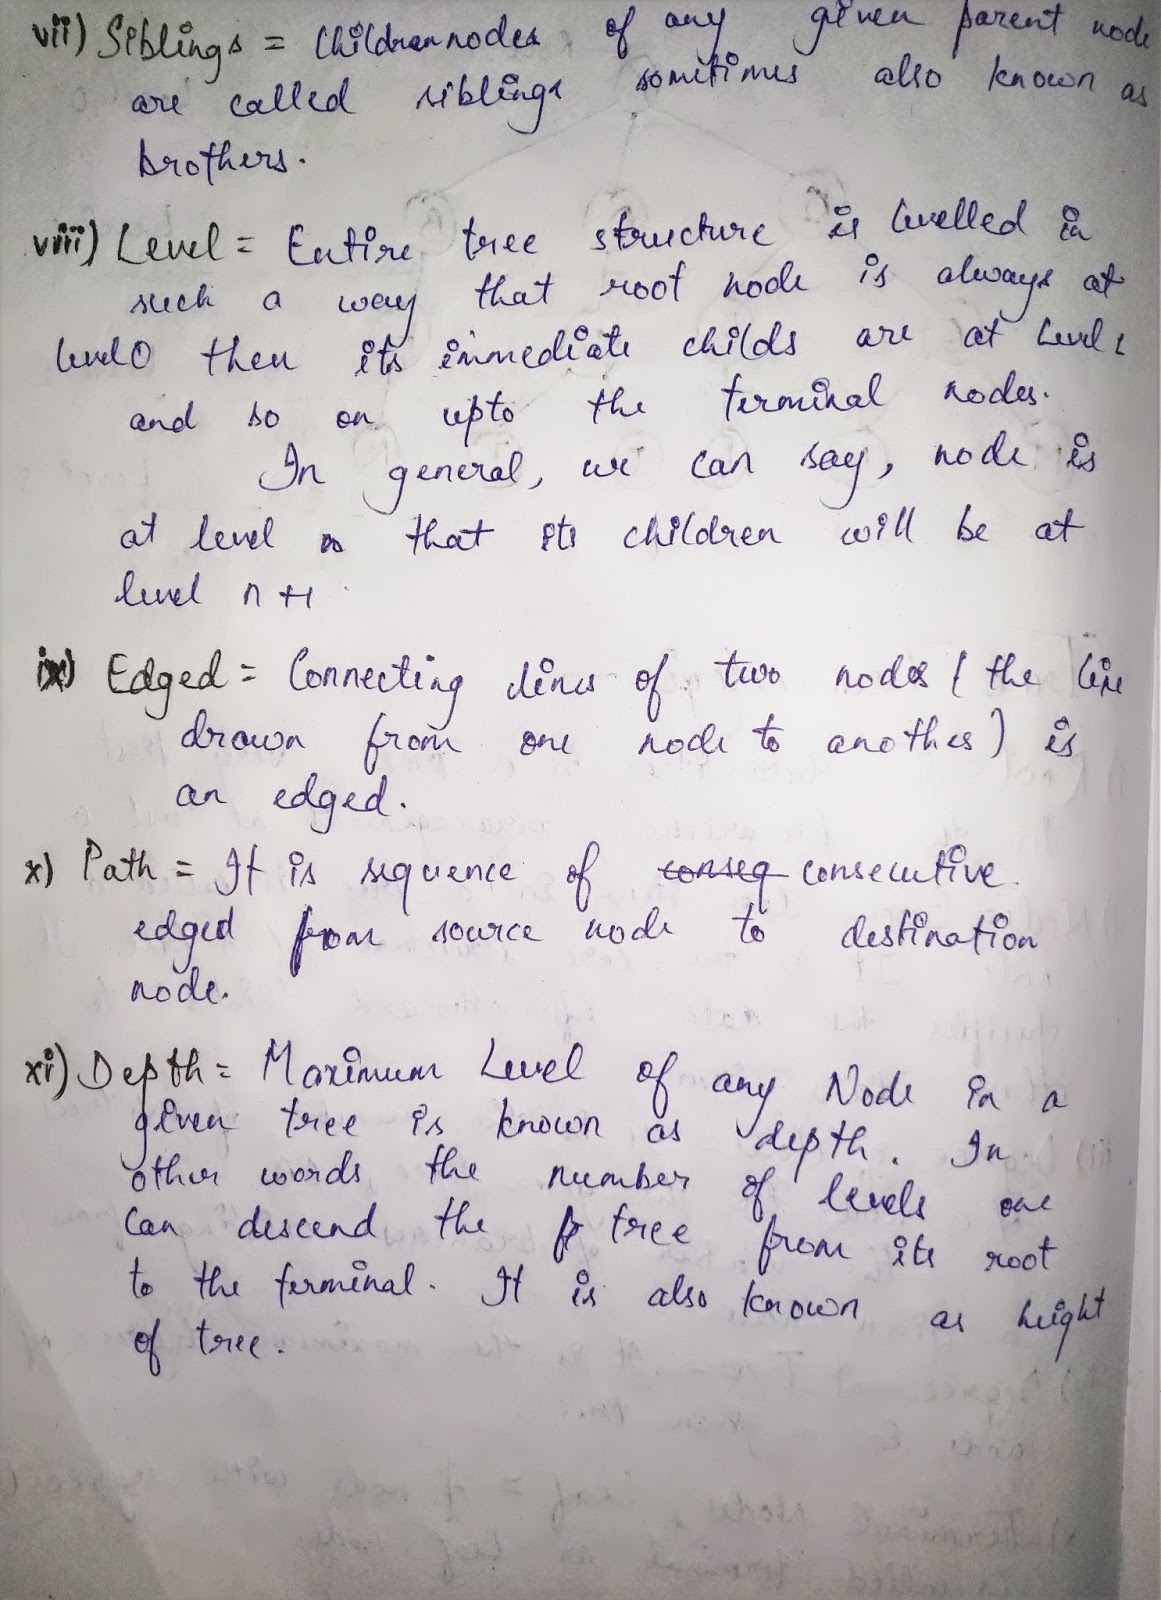 vii) Siblings = Children nodes of any given parent node
are called siblings sometimes also known as
brothers.
viii) Level = Entire tree structure is levelled in
such a way that root node is always at
level 0 then its immediate childs are at level 1
and so on upto the terminal nodes.
In general, we can say, node is
at level n that its children will be at
level n+1
ix) Edged = Connecting lines of two nodes (the line
drawn from one node to another) is
an edged.
x) Path = It is sequence of conseq consecutive
edged from source node to destination
node.
xi) Depth = Maximum Level of any Node in a
given tree is known as depth. In
other words the number of levels one
can descend the tree from its root
to the terminal. It is also known as height
of tree.